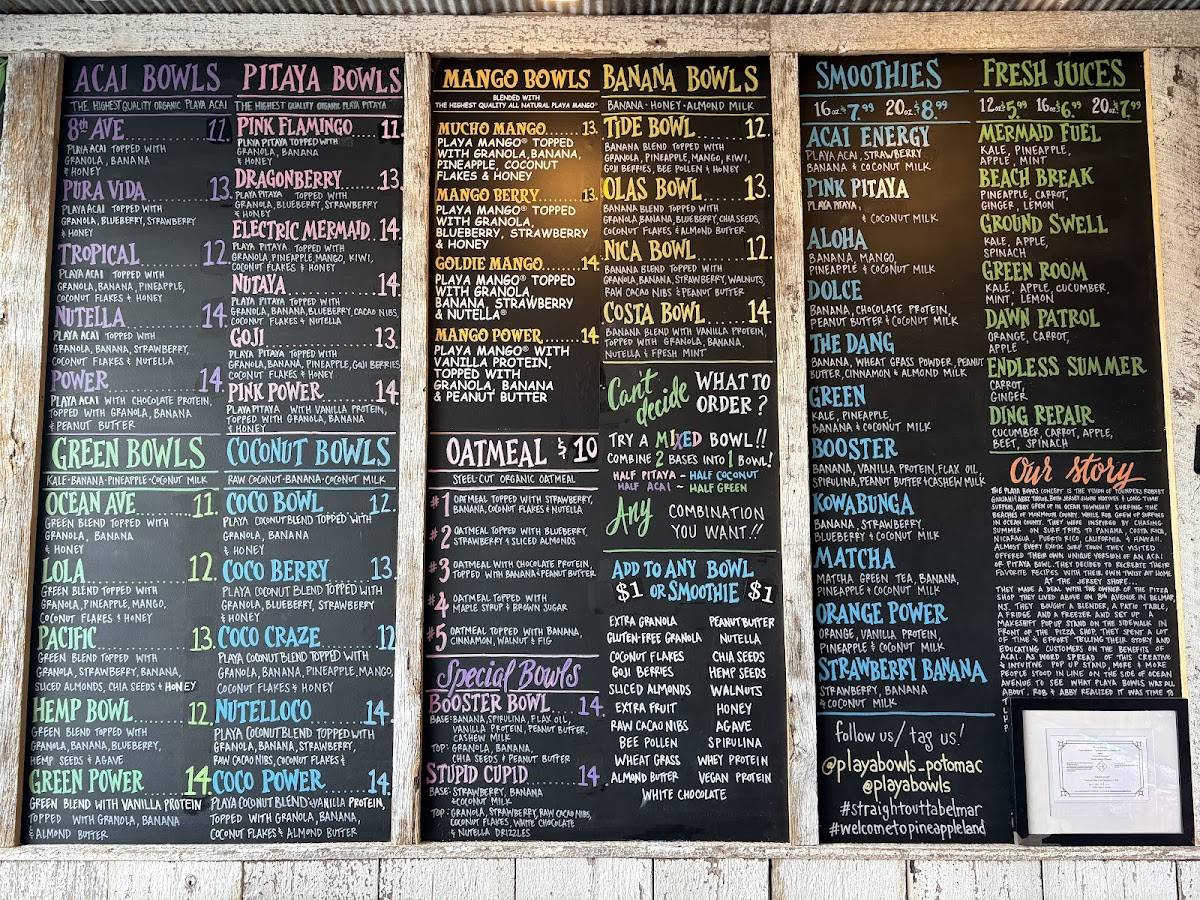 ACAI BOWLS
THE HIGHEST QUALITY ORGANIC PLAYA ACAI
8th AVE 11.
PLAYA ACAI TOPPED WITH
GRANOLA, BANANA
& HONEY
PURA VIDA 13.
PLAYA ACAI TOPPED WITH
GRANOLA, BLUEBERRY, STRAWBERRY
& HONEY
TROPICAL 12.
PLAYA ACAI TOPPED WITH
GRANOLA, BANANA, PINEAPPLE,
COCONUT FLAKES & HONEY
NUTELLA 14.
PLAYA ACAI TOPPED WITH
GRANOLA, BANANA, STRAWBERRY,
COCONUT FLAKES & NUTELLA
POWER 14.
PLAYA ACAI WITH CHOCOLATE PROTEIN,
TOPPED WITH GRANOLA, BANANA
& PEANUT BUTTER
GREEN BOWLS
KALE-BANANA-PINEAPPLE-COCONUT MILK
OCEAN AVE 11.
GREEN BLEND TOPPED WITH
GRANOLA, BANANA
& HONEY
LOLA 12.
GREEN BLEND TOPPED WITH
GRANOLA, PINEAPPLE, MANGO,
COCONUT FLAKES & HONEY
PACIFIC 13.
GREEN BLEND TOPPED WITH
GRANOLA, STRAWBERRY, BANANA,
SLICED ALMONDS, CHIA SEEDS & HONEY
HEMP BOWL 12.
GREEN BLEND TOPPED WITH
GRANOLA, BANANA, BLUEBERRY,
HEMP SEEDS & AGAVE
GREEN POWER 14.
GREEN BLEND WITH VANILLA PROTEIN
TOPPED WITH GRANOLA, BANANA
& ALMOND BUTTER
PITAYA BOWLS
THE HIGHEST QUALITY ORGANIC PLAYA PITAYA
PINK FLAMINGO 11.
PLAYA PITAYA TOPPED WITH
GRANOLA, BANANA
& HONEY
DRAGONBERRY 13.
PLAYA PITAYA TOPPED WITH
GRANOLA, BLUEBERRY, STRAWBERRY
& HONEY
ELECTRIC MERMAID 14.
PLAYA PITAYA TOPPED WITH
GRANOLA, PINEAPPLE, MANGO, KIWI,
COCONUT FLAKES & HONEY
NUTAYA 14.
PLAYA PITAYA TOPPED WITH
GRANOLA, BANANA, BLUEBERRY, CACAO NIBS,
COCONUT FLAKES & NUTELLA
GOJI 13.
PLAYA PITAYA TOPPED WITH
GRANOLA, BANANA, PINEAPPLE, GOJI BERRIES
COCONUT FLAKES & HONEY
PINK POWER 14.
PLAYA PITAYA WITH VANILLA PROTEIN,
TOPPED WITH GRANOLA, BANANA
& HONEY
COCONUT BOWLS
RAW COCONUT-BANANA-COCONUT MILK
COCO BOWL 12.
PLAYA COCONUT BLEND TOPPED WITH
GRANOLA, BANANA
& HONEY
COCO BERRY 13.
PLAYA COCONUT BLEND TOPPED WITH
GRANOLA, BLUEBERRY, STRAWBERRY
& HONEY
COCO CRAZE 12
PLAYA COCONUT BLEND TOPPED WITH
GRANOLA, BANANA, PINEAPPLE, MANGO,
COCONUT FLAKES & HONEY
NUTELLOCO 14.
PLAYA COCONUT BLEND TOPPED WITH
GRANOLA, BANANA, STRAWBERRY,
RAW CACAO NIBS, COCONUT FLAKES &
COCO POWER 14.
PLAYA COCONUT BLEND & VANILLA PROTEIN,
TOPPED WITH GRANOLA, BANANA,
COCONUT FLAKES & ALMOND BUTTER
MANGO BOWLS
BLENDED WITH
THE HIGHEST QUALITY ALL NATURAL PLAYA MANGO®
MUCHO MANGO 13.
PLAYA MANGO® TOPPED
WITH GRANOLA, BANANA,
PINEAPPLE, COCONUT
FLAKES & HONEY
MANGO BERRY 13.
PLAYA MANGO® TOPPED
WITH GRANOLA,
BLUEBERRY, STRAWBERRY
& HONEY
GOLDIE MANGO 14.
PLAYA MANGO® TOPPED
WITH GRANOLA,
BANANA, STRAWBERRY
& NUTELLA®
MANGO POWER 14.
PLAYA MANGO® WITH
VANILLA PROTEIN,
TOPPED WITH
GRANOLA, BANANA
& PEANUT BUTTER
OATMEAL $10
STEEL CUT ORGANIC OATMEAL
#1 OATMEAL TOPPED WITH STRAWBERRY,
BANANA, COCONUT FLAKES & NUTELLA
#2 OATMEAL TOPPED WITH BLUEBERRY,
STRAWBERRY & SLICED ALMONDS
#3 OATMEAL WITH CHOCOLATE PROTEIN,
TOPPED WITH BANANA & PEANUT BUTTER
#4 OATMEAL TOPPED WITH
MAPLE SYRUP & BROWN SUGAR
#5 OATMEAL TOPPED WITH BANANA,
CINNAMON, WALNUT & FIG
Special Bowls
BOOSTER BOWL 14.
BASE: BANANA, SPIRULINA, FLAX OIL,
VANILLA PROTEIN, PEANUT BUTTER,
CASHEW MILK
TOP: GRANOLA, BANANA,
CHIA SEEDS & PEANUT BUTTER
STUPID CUPID 14
BASE: STRAWBERRY, BANANA
& COCONUT MILK
TOP: GRANOLA, STRAWBERRY, RAW CACAO NIBS,
COCONUT FLAKES, WHITE CHOCOLATE
& NUTELLA DRIZZLES
BANANA BOWLS
BANANA-HONEY-ALMOND MILK
TIDE BOWL 12.
BANANA BLEND TOPPED WITH
GRANOLA, PINEAPPLE, MANGO, KIWI,
GOJI BERRIES, BEE POLLEN & HONEY
OLAS BOWL 13.
BANANA BLEND TOPPED WITH
GRANOLA, BANANA, BLUEBERRY, CHIA SEEDS,
COCONUT FLAKES & ALMOND BUTTER
NICA BOWL 12.
BANANA BLEND TOPPED WITH
GRANOLA, BANANA, STRAWBERRY, WALNUTS,
RAW CACAO NIBS & PEANUT BUTTER
COSTA BOWL 14.
BANANA BLEND WITH VANILLA PROTEIN,
TOPPED WITH GRANOLA, BANANA,
NUTELLA & FRESH MINT
Can't decide WHAT TO
ORDER?
TRY A MIXED BOWL!!
COMBINE 2 BASES INTO 1 BOWL!
HALF PITAYA ~ HALF COCONUT
HALF ACAI ~ HALF GREEN
Any COMBINATION
YOU WANT!!
ADD TO ANY BOWL
$1 OR SMOOTHIE $1
EXTRA GRANOLA PEANUT BUTTER
GLUTEN-FREE GRANOLA NUTELLA
COCONUT FLAKES CHIA SEEDS
GOJI BERRIES HEMP SEEDS
SLICED ALMONDS WALNUTS
EXTRA FRUIT HONEY
RAW CACAO NIBS AGAVE
BEE POLLEN SPIRULINA
WHEAT GRASS WHEY PROTEIN
ALMOND BUTTER VEGAN PROTEIN
WHITE CHOCOLATE
SMOOTHIES
16 oz. $7.99 20 oz. $8.99
ACAI ENERGY
PLAYA ACAI, STRAWBERRY
BANANA & COCONUT MILK
PINK PITAYA
PLAYA PITAYA,
& COCONUT MILK
ALOHA
BANANA, MANGO,
PINEAPPLE & COCONUT MILK
DOLCE
BANANA, CHOCOLATE PROTEIN,
PEANUT BUTTER & COCONUT MILK
THE DANG
BANANA, WHEAT GRASS POWDER, PEANUT
BUTTER, CINNAMON & ALMOND MILK
GREEN
KALE, PINEAPPLE,
BANANA & COCONUT MILK
BOOSTER
BANANA, VANILLA PROTEIN, FLAX OIL,
SPIRULINA, PEANUT BUTTER & CASHEW MILK
KOWABUNGA
BANANA, STRAWBERRY,
BLUEBERRY & COCONUT MILK
MATCHA
MATCHA GREEN TEA, BANANA,
PINEAPPLE & COCONUT MILK
ORANGE POWER
ORANGE, VANILLA PROTEIN,
PINEAPPLE & COCONUT MILK
STRAWBERRY BANANA
STRAWBERRY, BANANA
& COCONUT MILK
follow us/ tag us!
@playabowls_potomac
@playabowls
#straightouttabelmar
#welcometopineappleland
FRESH JUICES
12 oz $5.99 16 oz $6.99 20 oz $7.99
MERMAID FUEL
KALE, PINEAPPLE,
APPLE, MINT
BEACH BREAK
PINEAPPLE, CARROT,
GINGER, LEMON
GROUND SWELL
KALE, APPLE,
SPINACH
GREEN ROOM
KALE, APPLE, CUCUMBER,
MINT, LEMON
DAWN PATROL
ORANGE, CARROT,
APPLE
ENDLESS SUMMER
CARROT,
GINGER
DING REPAIR
CUCUMBER, CARROT, APPLE,
BEET, SPINACH
Our story
THE PLAYA BOWLS CONCEPT IS THE VISION OF FOUNDERS ROBERT
GIULIANI & ABBY TAYLOR. BOTH JERSEY SHORE NATIVES & LONG TIME
SURFERS, ABBY GREW UP IN OCEAN TOWNSHIP SURFING THE
BEACHES OF MONMOUTH COUNTY, WHILE ROB GREW UP SURFING
IN OCEAN COUNTY. THEY WERE INSPIRED BY CHASING
SUMMER ON SURF TRIPS TO PANAMA, COSTA RICA,
NICARAGUA, PUERTO RICO, CALIFORNIA & HAWAII.
ALMOST EVERY EXOTIC SURF TOWN THEY VISITED
OFFERED THEIR OWN UNIQUE VERSION OF AN ACAI
OR PITAYA BOWL. THEY DECIDED TO RECREATE THEIR
FAVORITE RECIPES WITH THEIR OWN TWIST AT HOME
AT THE JERSEY SHORE...
THEY MADE A DEAL WITH THE OWNER OF THE PIZZA
SHOP THEY LIVED ABOVE ON 8th AVENUE IN BELMAR,
NJ. THEY BOUGHT A BLENDER, A PATIO TABLE,
A FRIDGE AND A FREEZER AND SET UP A
MAKESHIFT POP UP STAND ON THE SIDEWALK IN
FRONT OF THE PIZZA SHOP. THEY SPENT A LOT
OF TIME & EFFORT TELLING THEIR STORY AND
EDUCATING CUSTOMERS ON THE BENEFITS OF
ACAI. AS WORD SPREAD OF THIS CREATIVE
& INTUITIVE POP UP STAND, MORE & MORE
PEOPLE STOOD IN LINE ON THE SIDE OF OCEAN
AVENUE TO SEE WHAT PLAYA BOWLS WAS ALL
ABOUT. ROB & ABBY REALIZED IT WAS TIME TO